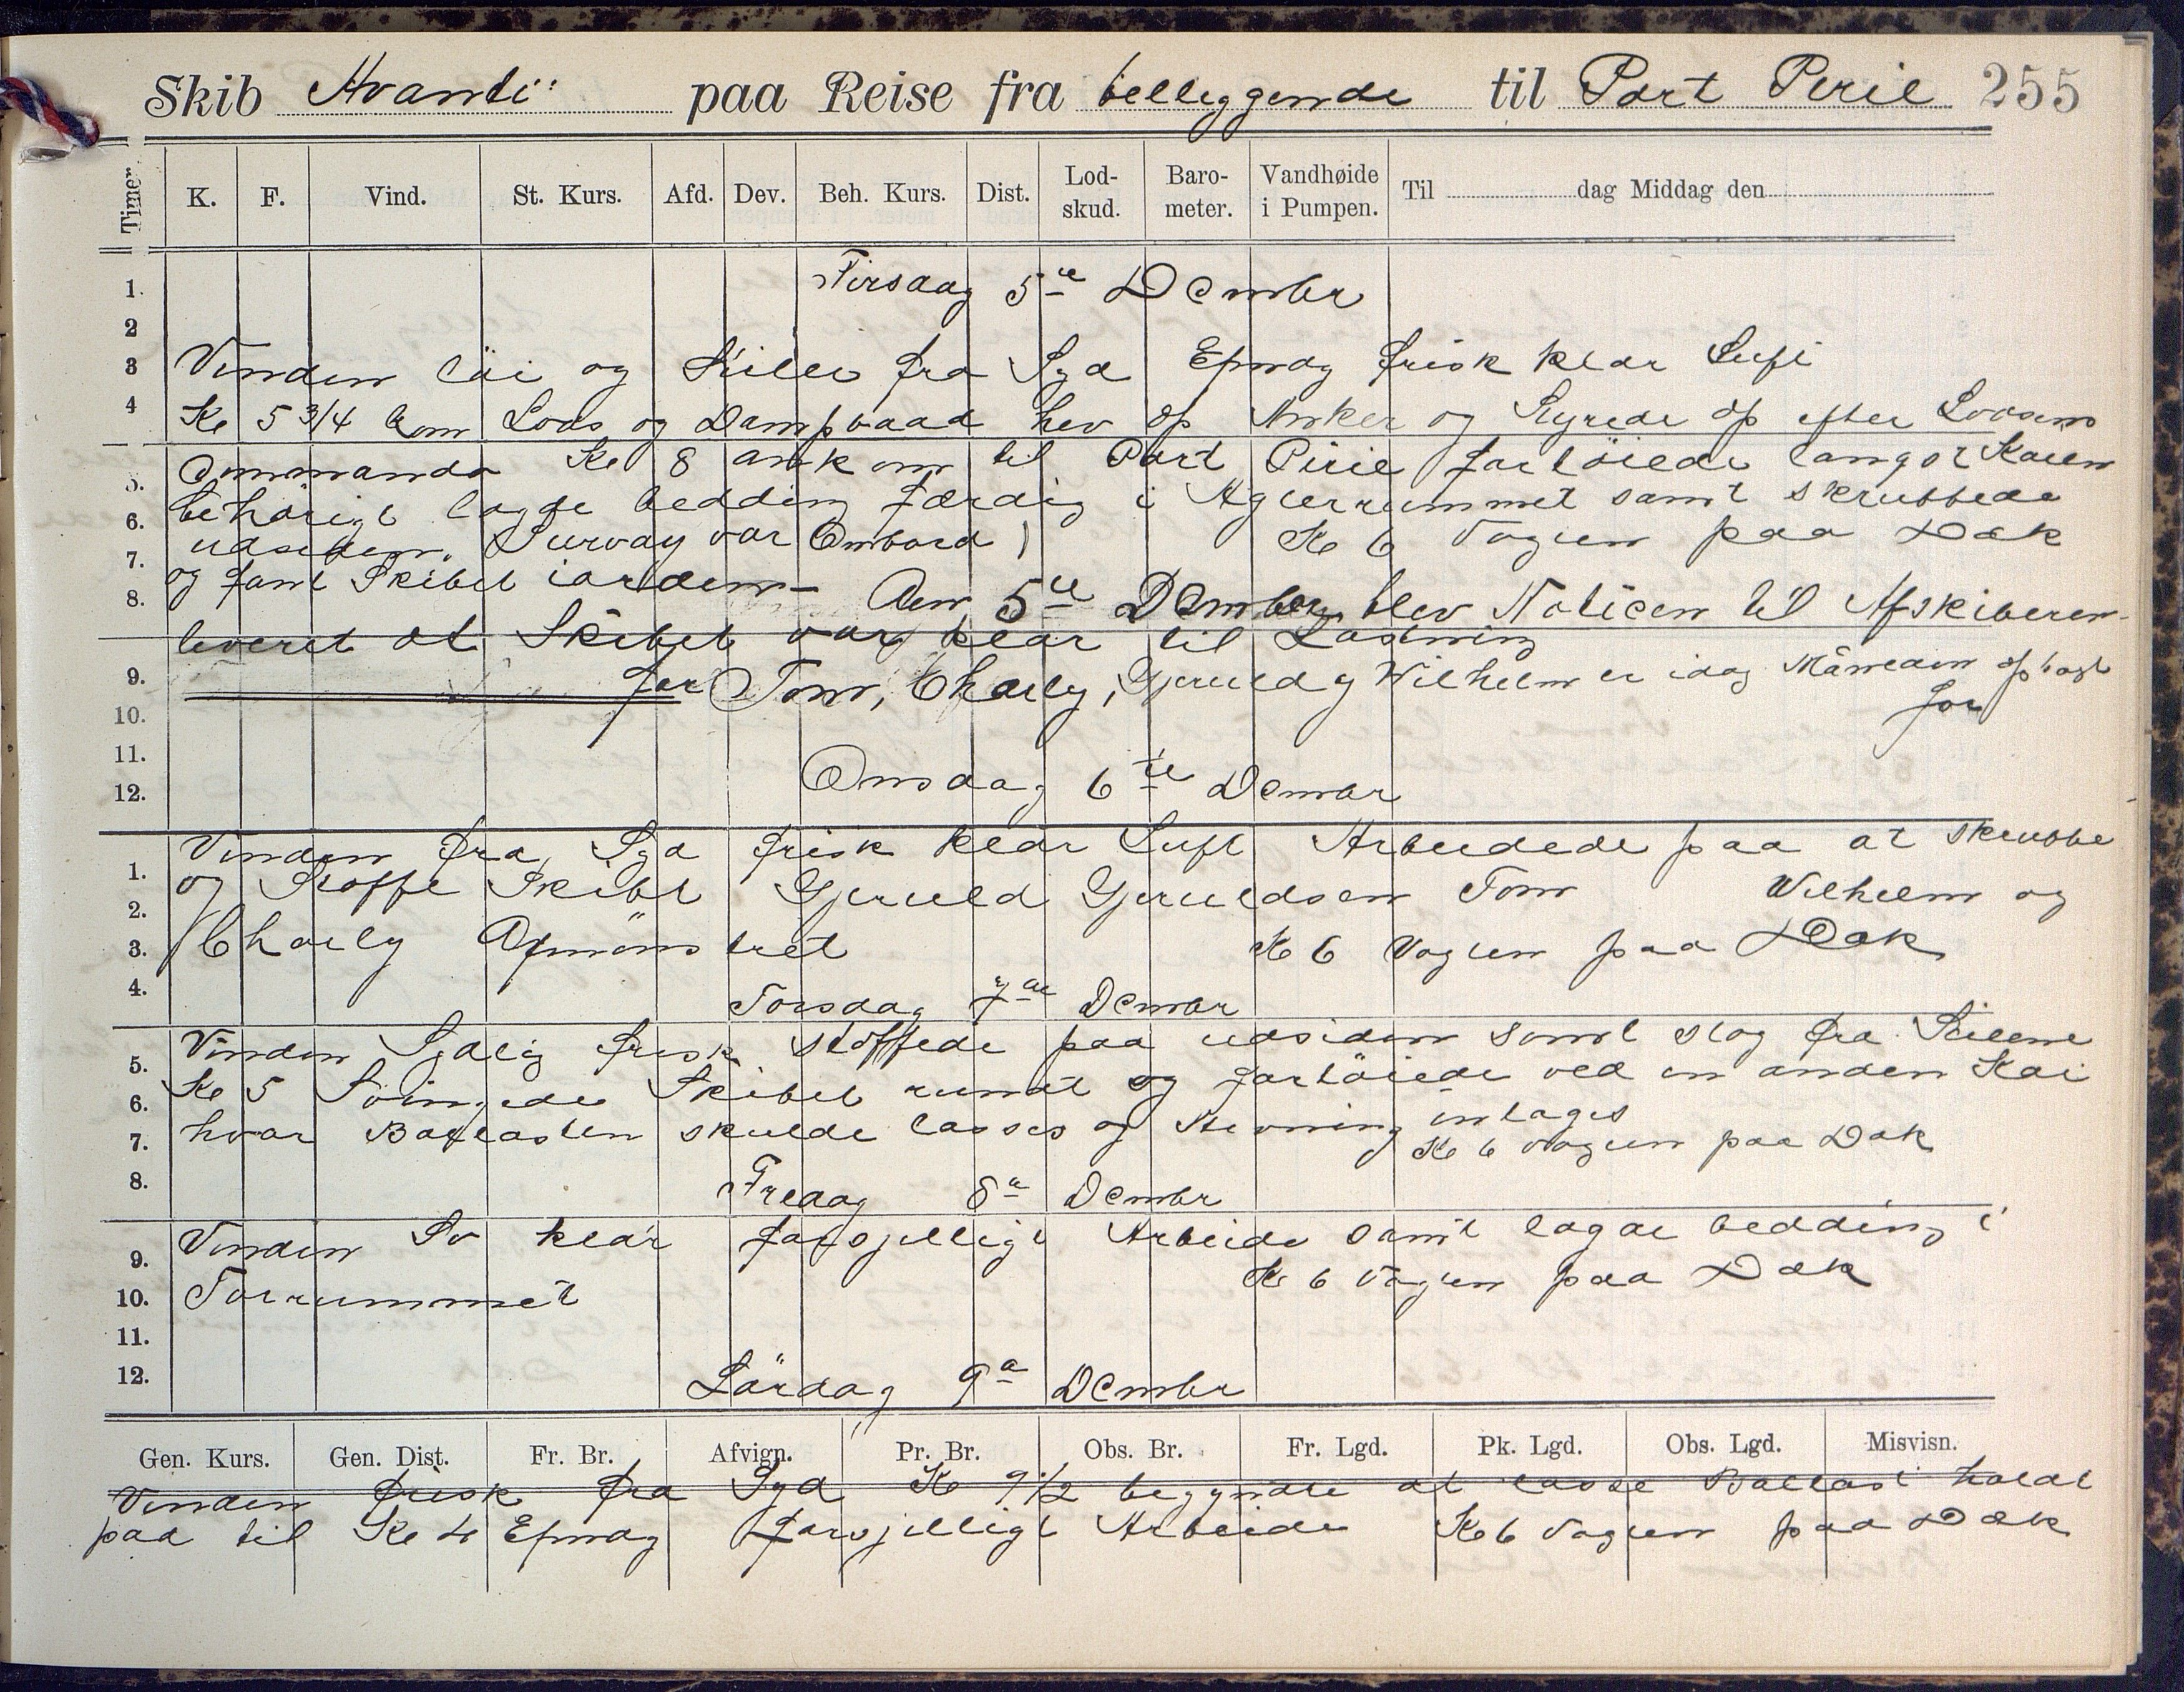 Skib Avanti paa Reise fra belliggende til Port Peril 255
Timer K. F. Vind. St. Kurs. Afd. Dev. Beh. Kurs. Dist. Lod-skud. Baro-meter. Vandhøide i Pumpen. Til dag Middag den
1. Tirsdag 5te Dcmbr
2
3 Vinden löi og stille fra Syd Epmdg frisk klar Luft
4 Kl 5 3/4 kom Lods og Dampbaad hev op Anker og Styrede op efter Lodsens
5. Commando Kl 8 ankom til Port Pirie fortöiede langst Kaien
6. behörigt lagde bedding færdig i Agterrummet samt skrubbede
7. udsiden. Survay var Ombord Kl 6 Vagten paa Dæk
8. og fant Skibet iorden - Den 5te Dcmber blev Noticen til Afskiberen
leveret at Skibet var klar til Lastning
9. for Tom, Charly, Gjeruld og Wilhelm er idag Måneden opbragt
10. for
11.
12. Onsdag 6te Dcmbr
Vinden fra Syd frisk klar Luft Arbeidede paa at skrubbe
1. og Stoffe Skibt Gjeruld Gjeruldsen Tom Wilhelm og
2.
3. Charly Afmönstret Kl 6 Vagten paa Dæk
4. Torsdag 7de Dcmbr
5. Vinden Sydlig frisk stoffede paa udsiden samt slog fra Seilene
6. Kl 5 Svingede Skibet rundt og fortöiede ved en anden Kai
7. hvor Ballasten skulde losses og Stevning intages
Kl 6 Vagten paa Dæk
8. Fredag 8de Dcmbr
9. Vinden Sv klar forsjelligt Arbeide samt lagde bedding i
10. Forrummet Kl 6 Vagten paa Dæk
11.
12. Lördag 9de Dcmbr
Gen. Kurs. Gen. Dist. Fr. Br. Afvign. Pr. Br. Obs. Br. Fr. Lgd. Pk. Lgd. Obs. Lgd. Misvisn.
Vinden frisk fra Syd Kl 9 1/2 begyndte at losse Ballast holdt
paa til Kl 4 Epmdg forsjelligt Arbeide Kl 6 Vagten paa Dæk